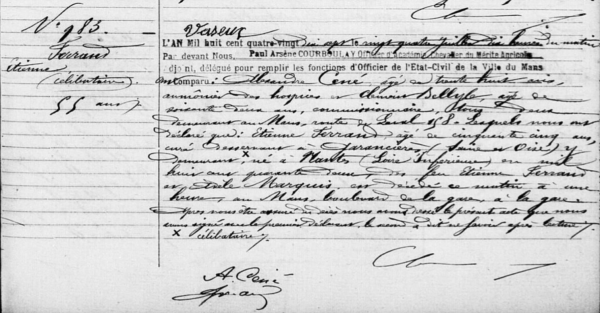 N° 983
Ferrand
Etienne
(célibataire)
55 ans
Vaseux
L'AN Mil huit cent quatre-vingt dix sept le vingt quatre juillet dix heures du matin
Par devant Nous, Paul Arsène COURBOULAY Officier d'Académie Chevalier du Mérite Agricole
adjoint, délégué pour remplir les fonctions d'Officier de l'Etat-Civil de la Ville du Mans
ont Comparu: Alexandre Cené âgé de trente huit ans
aumônier des hospices, âgé de
soixante deux ans, commissionnaire, tous deux
demeurant au Mans, route de Laval 158. Lesquels nous ont
déclaré que: Etienne Ferrand âgé de cinquante cinq ans,
curé desservant à Garancières, (Seine et Oise) y
demeurant, x né à Nantes (Loire Inférieure) en mil
huit cent quarante deux, des feu Etienne Ferrand
et Marquis, est décédé ce matin à une
heure, au Mans, boulevard de la gare, à la gare.
Après nous être assuré du décès nous avons dressé le présent acte que nous
avons signé avec le premier déclarant, le second a dit ne savoir après lecture
x célibataire,
A Cené